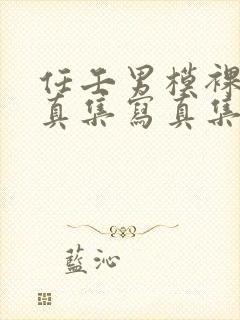 任壬男模裸
真集寫真集
藍沁